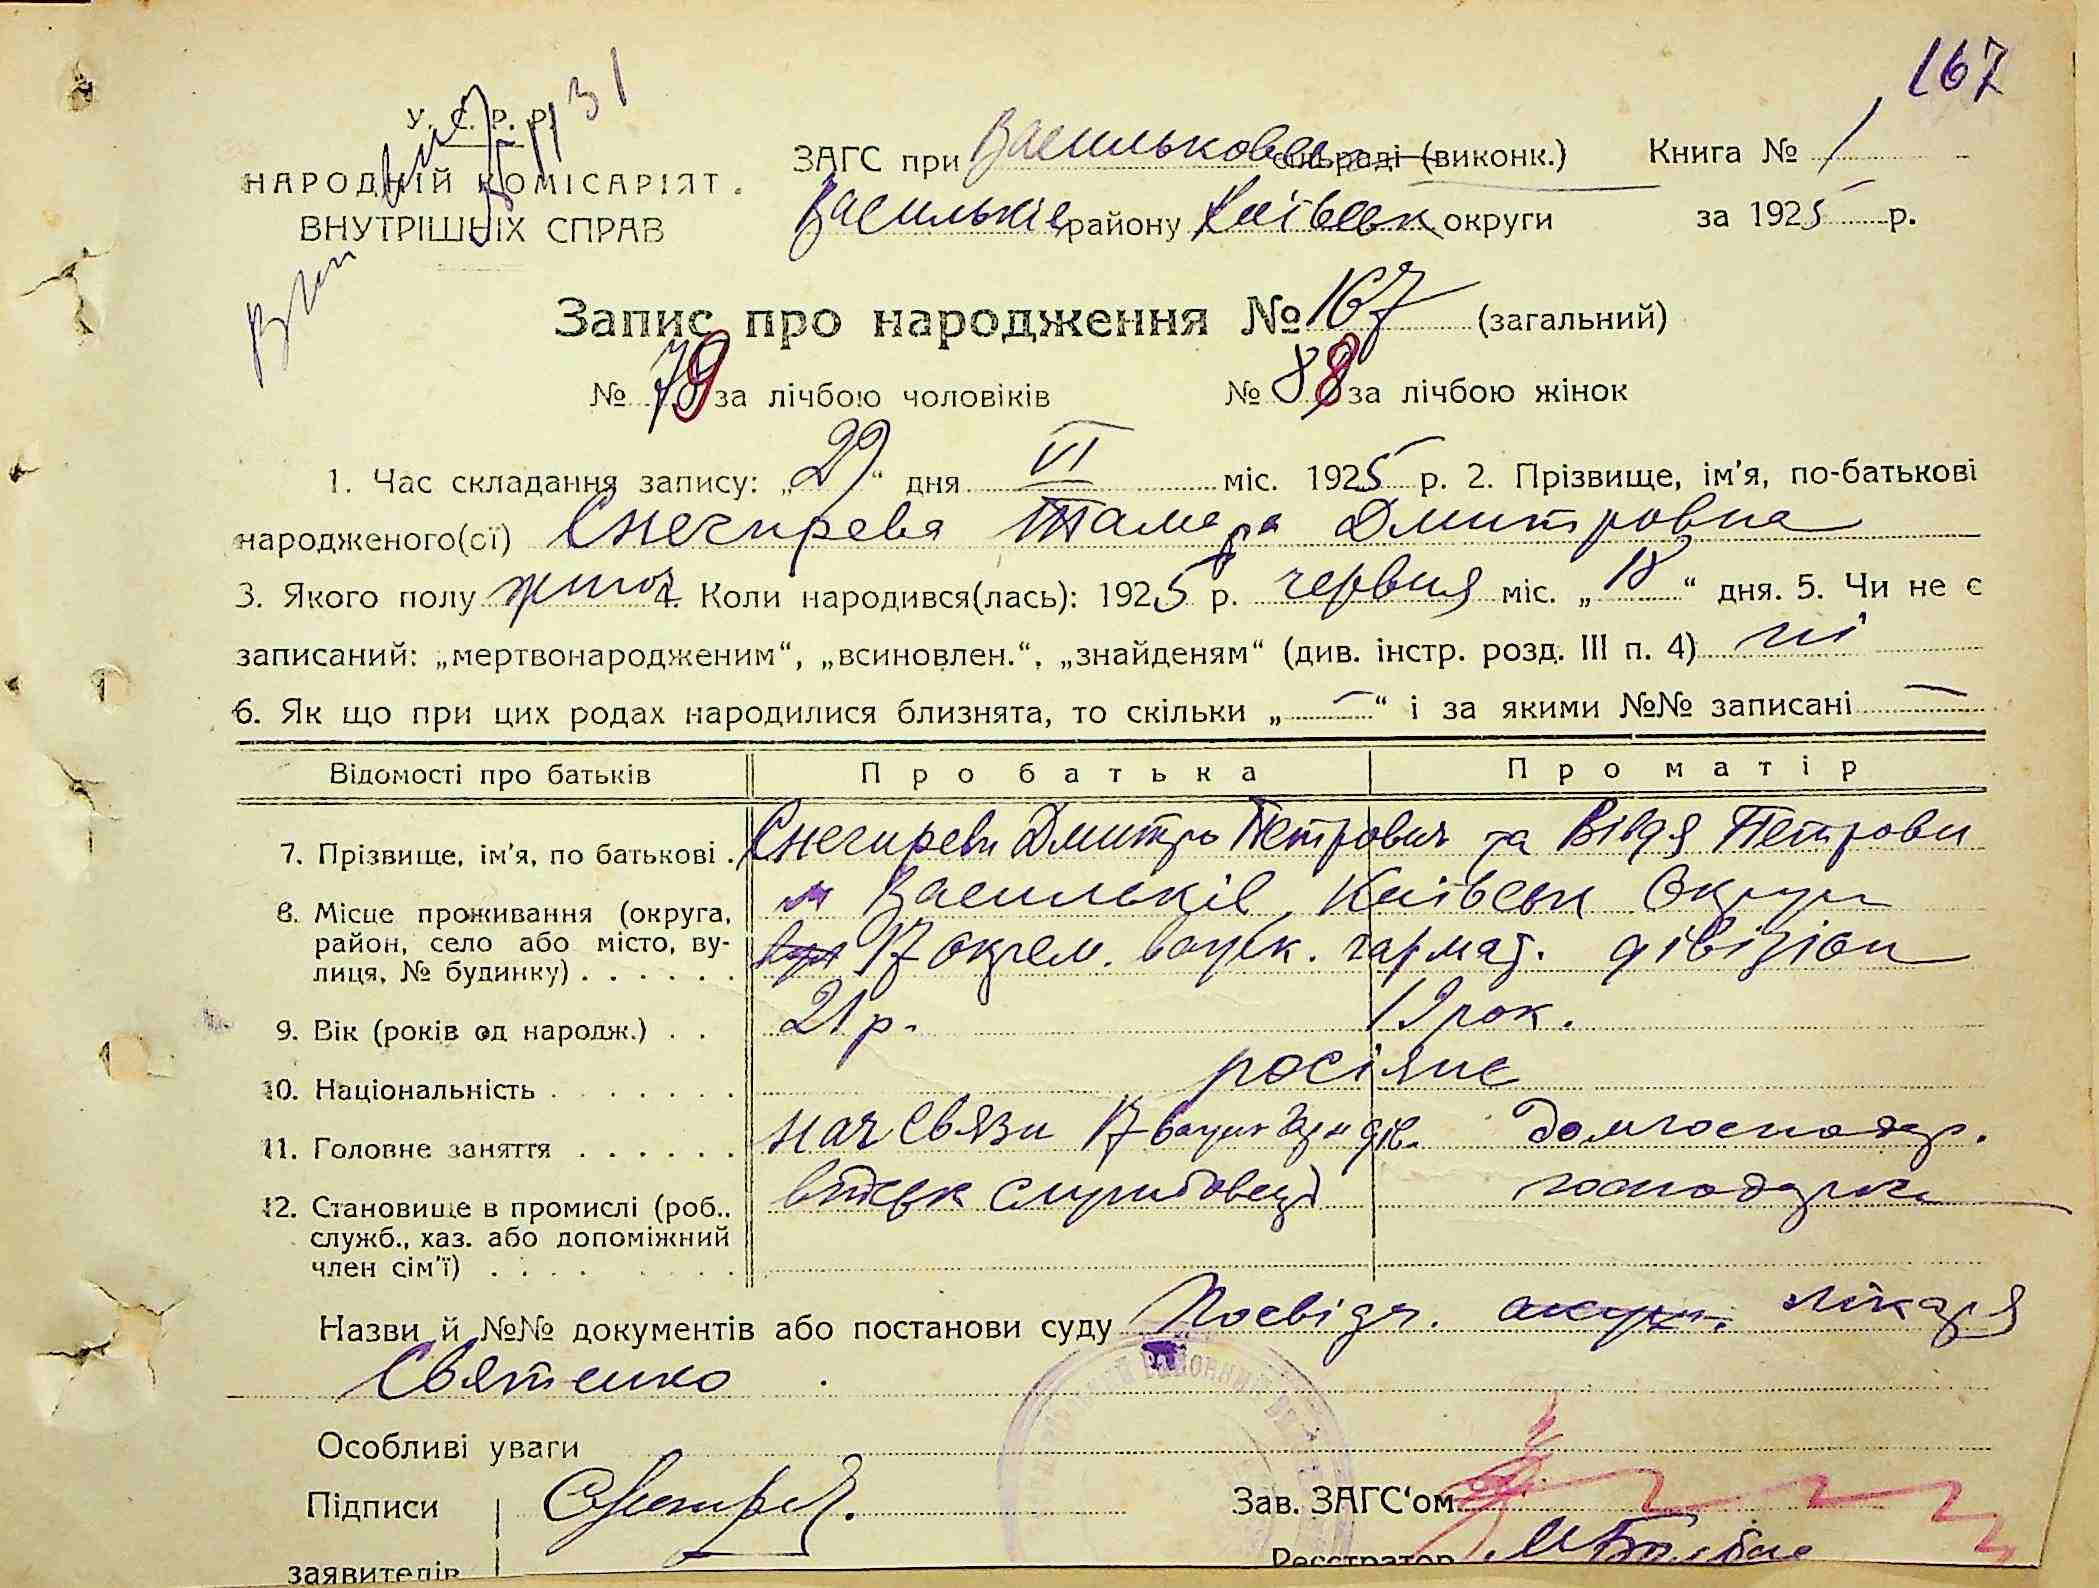 167
У. С. Р. Р.
НАРОДНІЙ КОМІСАРІЯТ
ВНУТРІШНІХ СПРАВ
ЗАГС при Васильковск сільраді (виконк.) Книга № 1
Васильків району Київськ округи за 1925 р.
Запис про народження № 167 (загальний)
№ 79 за лічбою чоловіків № 88 за лічбою жінок
1. Час складання запису: „29“ дня VI міс. 1925 р. 2. Прізвище, ім'я, по-батькові
народженого(ої) Снегирева Тамара Дмитровна
3. Якого полу жіноч 4. Коли народився(лась): 1925 р. червня міс. „18“ дня. 5. Чи не є
записаний: „мертвонародженим“, „всиновлен.“, „знайденям“ (див. інстр. розд. III п. 4) ні
6. Як що при цих родах народилися близнята, то скільки „—“ і за якими №№ записані —
Відомості про батьків Про батька Про матір
7. Прізвище, ім'я, по батькові . Снегиреви Дмитро Петрович та Петровн
8. Місце проживання (округа, район, село або місто, вулиця, № будинку) . . . . . . м Васильків, Київськ Округи
17 окрем. гармат. дівізіон
9. Вік (років од народж.) . . 21 р. 19 рок.
10. Національність . . . . . . . росіяне
11. Головне заняття . . . . . . нач связи 17 див. домгосподар.
12. Становище в промислі (роб., служб., хаз. або допоміжний член сім'ї) . . . . . . . війск службовець господарка
Назви й №№ документів або постанови суду Посвідч. акуш. лікаря
Святенко
Особливі уваги
Підписи
заявителів
Зав. ЗАГС‘ом
Реєстратор